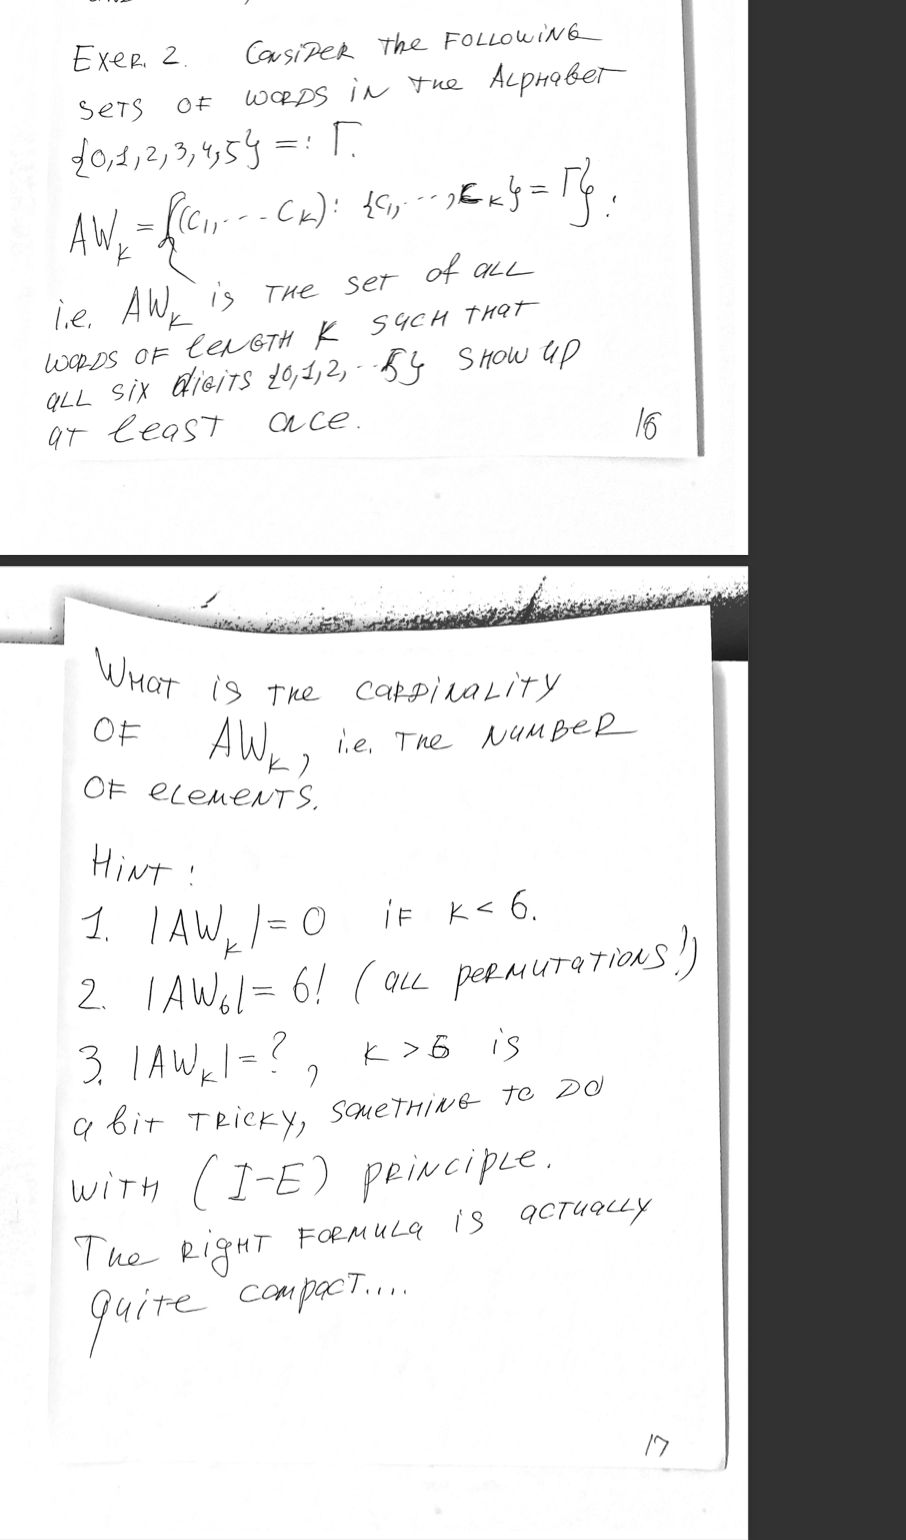 Exer. 2. Consider the following
sets of words in the Alphabet
{0,1,2,3,4,5} =: Γ.
AW_k = {(c_1, ... c_k): {c_1, ..., c_k} = Γ}:
i.e. AW_k is the set of all
words of length k such that
all six digits {0,1,2,..5} show up
at least once.
16
What is the cardinality
of AW_k, i.e. the number
of elements.
Hint:
1. |AW_k| = 0 if k < 6.
2. |AW_6| = 6! (all permutations!)
3. |AW_k| = ?, k > 6 is
a bit tricky, something to do
with (I-E) principle.
The right formula is actually
quite compact....
17